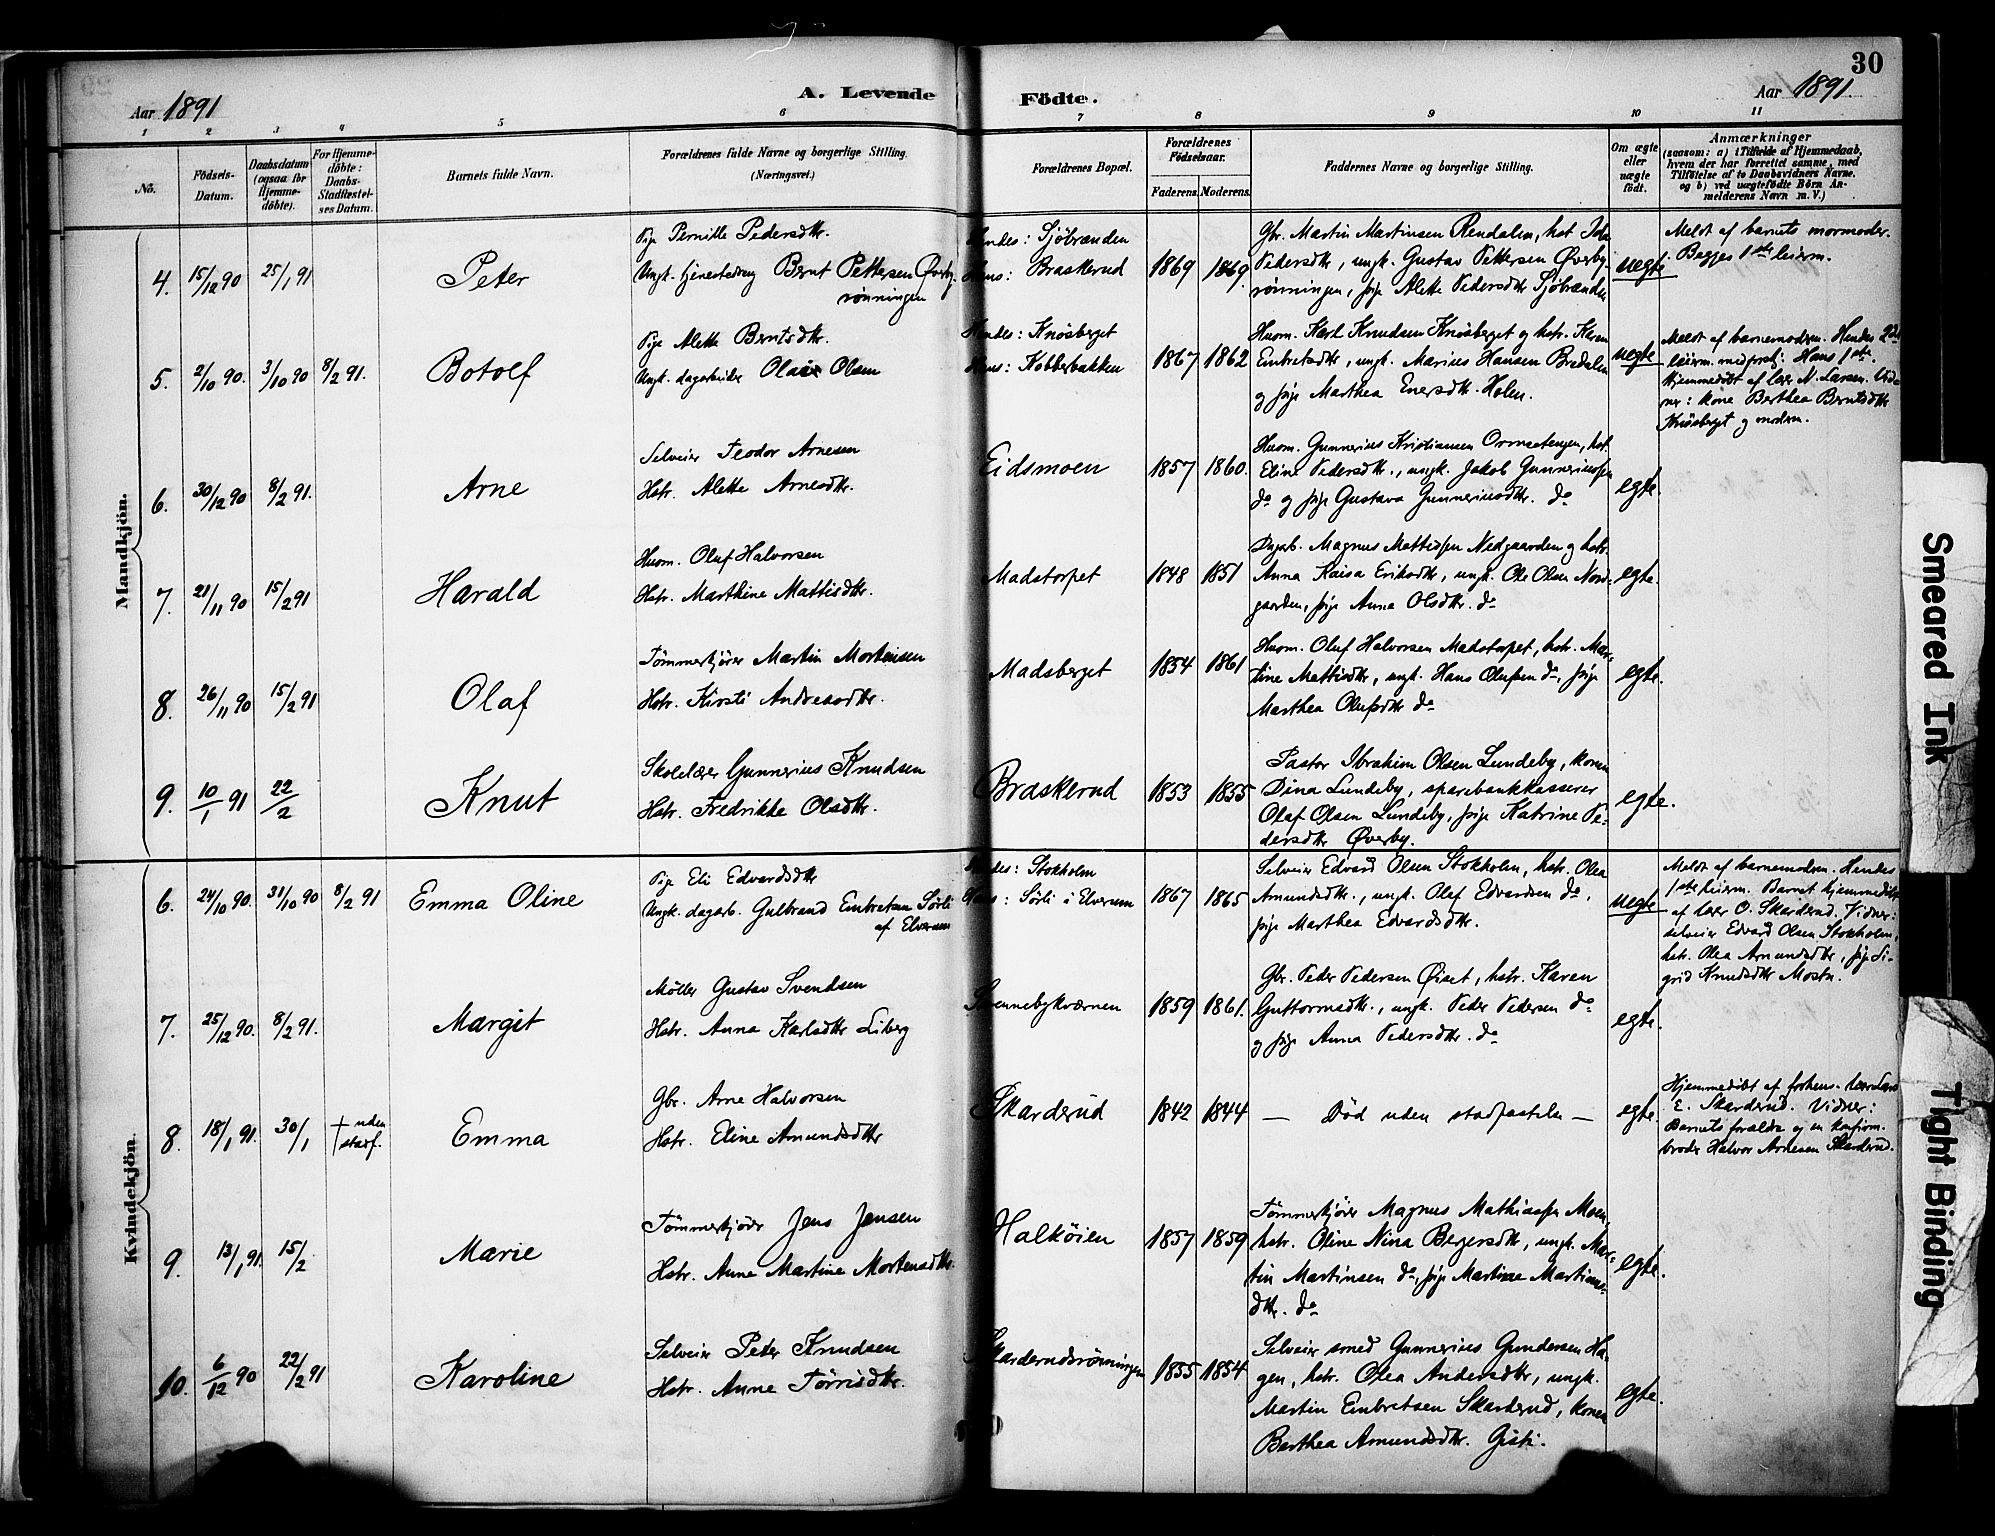 30
Aar 1891
A. Levende Födte.
Aar 1891.
1 2 3 4 5 6 7 8 9 10 11
No.
Födsels-
Datum.
Daabsdatum
(ogsaa for
Hjemme-
döbte).
For Hjemme-
döbte:
Daabs-
Stadfæstel-
ses Datum.
Barnets fulde Navn.
Forældrenes fulde Navne og borgerlige Stilling.
(Næringsvei.)
Forældrenes Bopæl.
Forældrenes
Födselsaar.
Faderens. Moderens.
Faddernes Navne og borgerlige Stilling.
Om ægte
eller
uægte
födt.
Anmærkninger
(saasom: a) i Tilfælde af Hjemmedaab,
hvem der har forrettet samme, med
Tilföielse af to Daabsvidners Navne,
og b) ved uægtefödte Börn An-
melderens Navn m. V.)
Mandkjön.
4. 15/12 90 25/1 91
Peter
Pige Pernille Pedersdtr.
Ungk. tjenestedreng Bernt Pettersen Øverby-
rönningen
Hendes: Sjöbrænden
Hans: Braskerud
1869 1869.
Gbr. Martin Martinsen Rendalen, hst. Ida
Pedersdtr, ungk. Gustav Pettersen Øverby-
rönningen, pige Alette Pedersdtr Sjöbrænden
uegte
Meldt af barnets mormoder.
Begges 1ste leierm.
5. 2/10 90. 3/10 90 8/2 91.
Botolf
Pige Alette Berntsdtr.
Ungk. dagarbeider Olaus Olsen
Hendes: Knösberget
Hans: Kobberbakken
1867 1862
Husm. Karl Knudsen Knösberget og hstr. Karen
Embretsdtr, ungk. Marius Hansen Bredalen
og pige Marthea Enersdtr. Holen.
uegte
Meldt af barnemoderen. Hendes 2det
leierm. med prof.: Hans 1ste.
Hjemmedöbt af lærer N. Larsen. Vid-
ner: kone Berthea Berntsdtr
Knösberget og moderen.
6. 30/12 90 8/2 91.
Arne
Selveier Teodor Arnesen
Hstr. Alette Arnesdtr.
Eidsmoen
1857 1860.
Husm. Gunnerius Kristiansen Ormsetengen, hst.
Eline Pedersdtr., ungk. Jakob Gunneriussen
do og pige Gustava Gunneriusdtr. do
egte.
7. 21/11 90 15/2 91
Harald
Husm. Oluf Halvorsen
Hstr. Marthine Mattisdtr.
Madstorpet
1848 1851
Dagarb. Magnus Mattissen Nedgaarden og hstr.
Anna Kaisa Eriksdtr, ungk. Ole Olsen Nord-
gaarden, pige Anna Olsdtr. do
egte.
8. 26/11 90 15/2 91
Olaf
Tömmerkjörer Martin Mortensen
Hstr. Kirsti Andreasdtr.
Madsberget
1854 1861
Husm. Oluf Halvorsen Madstorpet, hstr. Mar-
tine Mattisdtr, ungk. Hans Olufsen do, pige
Marthea Olufsdtr do
egte.
9. 10/1 91 22/2
Knut
Skolelærer Gunnerius Knudsen
Hstr. Fredrikke Olsdtr.
Braskerud
1853 1855
Pastor Ibrahim Olsen Lundeby, konen
Dina Lundeby, sparebankkasserer
Olaf Olsen Lundeby, pige Katrine Pe-
dersdtr Øverby.
egte.
Kvindekjön.
6. 24/10 90. 31/10 90 8/2 91
Emma Oline
Pige Eli Edvardsdtr
Ungk. dagarb. Gulbrand Embretsen Sörli
af Elverum
Hendes: Stokholm
Hans: Sörli i Elverum
1867 1865
Selveier Edvard Olsen Stokholm, hstr. Olea
Amundsdtr., ungk. Olaf Edvardsen do,
pige Marthea Edvardsdtr.
uegte
Meldt af barnemoderen. Hendes
1ste leierm. Barnet hjemmedöbt
af lærer O. Skarderud. Vidner:
selveier Edvard Olsen Stokholm,
hstr. Olea Amundsdtr, pige Si-
grid Knudsdtr Mostu.
7. 25/12 90. 8/2 91.
Margit
Möller Gustav Svendsen
Hstr. Anna Karlsdtr Liberg
Svennebykværnen
1859 1861.
Gbr. Peder Pedersen Öiset, hstr. Karen
Guttormsdtr., ungk. Peder Pedersen do
og pige Anna Pedersdtr. do
egte.
8. 18/1 91. 30/1 † uden
stadf.
Emma
Gbr. Arne Halvorsen
Hstr. Eline Amundsdtr
Skarderud
1842 1844
— Död uden stadfæstelse —
egte.
Hjemmedöbt af forhenv. lærer Lars
E. Skarderud. Vidner:
Barnets forældre og en konfirm.
broder Halvor Arnesen Skarderud.
9. 13/1 91. 15/2
Marie
Tömmerkjörer Jens Jensen
Hstr. Anne Martine Mortensdtr.
Halköien
1857 1859
Tömmerkjörer Magnus Mathiassen Moen,
hstr. Oline Nina Bergersdtr, ungk. Mar-
tin Martinsen do, pige Martine Martins-
dtr. do
egte.
10. 6/12 90 22/2 91
Karoline
Selveier Peter Knudsen
Hstr. Anne Törrisdtr.
Skarderudsrönningen
1855 1854
Selveier smed Gunnerius Gundersen Ha-
gen, hstr. Olea Andersdtr, ungk.
Martin Embretsen Skarderud, konen
Berthea Amundsdtr. Gjsti.
egte.
Smeared Ink
Tight Binding